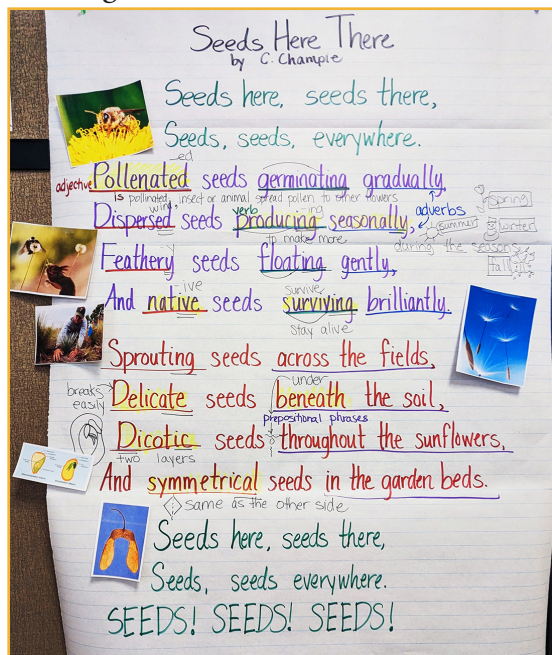 Seeds Here There
by C. Chample
Seeds here, seeds there,
Seeds, seeds, everywhere.
ed
adjective Pollenated seeds germinating gradually,
is pollinated, insect or animal spread pollen to other flowers
wind verb ing adverbs spring
Dispersed seeds producing seasonally,
to make more summer winter
during the seasons
Feathery seeds floating gently, fall
ive survive
And native seeds surviving brilliantly.
stay alive
Sprouting seeds across the fields,
breaks easily under
Delicate seeds beneath the soil,
prepositional phrases
Dicotic seeds throughout the sunflowers,
two layers
And symmetrical seeds in the garden beds.
same as the other side
Seeds here, seeds there,
Seeds, seeds everywhere.
SEEDS! SEEDS! SEEDS!